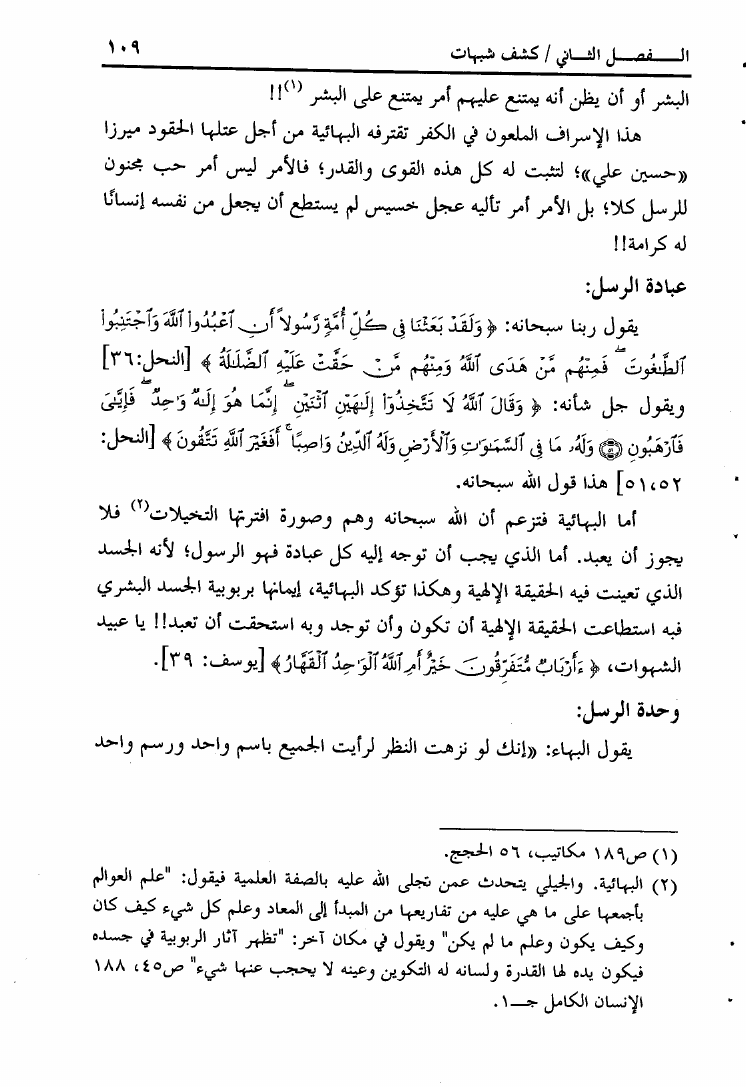 الفصل الثاني / كشف شبهات ١٠٩
البشر أو أن يظن أنه يمتنع عليهم أمر يمتنع على البشر (١)!!
هذا الإسراف الملعون في الكفر تقترفه البهائية من أجل عتلها الحقود ميرزا
«حسين علي»؛ لتثبت له كل هذه القوى والقدر؛ فالأمر ليس أمر حب مجنون
للرسل كلا؛ بل الأمر أمر تأليه عجل خسيس لم يستطع أن يجعل من نفسه إنسانًا
له كرامة!!
عبادة الرسل:
يقول ربنا سبحانه: ﴿ وَلَقَدْ بَعَثْنَا فِي كُلِّ أُمَّةٍ رَّسُولاً أَنِ ٱعْبُدُواْ ٱللَّهَ وَٱجْتَنِبُواْ
ٱلطَّٰغُوتَ ۖ فَمِنْهُم مَّنْ هَدَى ٱللَّهُ وَمِنْهُم مَّنْ حَقَّتْ عَلَيْهِ ٱلضَّلَٰلَةُ ﴾ [النحل:٣٦]
ويقول جل شأنه: ﴿ وَقَالَ ٱللَّهُ لَا تَتَّخِذُوٓاْ إِلَٰهَيْنِ ٱثْنَيْنِ ۖ إِنَّمَا هُوَ إِلَٰهٌ وَٰحِدٌ ۖ فَإِيَّٰىَ
فَٱرْهَبُونِ ۝٥١ وَلَهُۥ مَا فِي ٱلسَّمَٰوَٰتِ وَٱلْأَرْضِ وَلَهُ ٱلدِّينُ وَاصِبًا ۚ أَفَغَيْرَ ٱللَّهِ تَتَّقُونَ ﴾ [النحل:
٥١،٥٢] هذا قول الله سبحانه.
أما البهائية فتزعم أن الله سبحانه وهم وصورة افترتها التخيلات(٢) فلا
يجوز أن يعبد. أما الذي يجب أن توجه إليه كل عبادة فهو الرسول؛ لأنه الجسد
الذي تعينت فيه الحقيقة الإلهية وهكذا تؤكد البهائية، إيمانها بربوبية الجسد البشري
فبه استطاعت الحقيقة الإلهية أن تكون وأن توجد وبه استحقت أن تعبد!! يا عبيد
الشهوات، ﴿ ءَأَرْبَابٌ مُّتَفَرِّقُونَ خَيْرٌ أَمِ ٱللَّهُ ٱلْوَٰحِدُ ٱلْقَهَّارُ ﴾ [يوسف: ٣٩].
وحدة الرسل:
يقول البهاء: «إنك لو نزهت النظر لرأيت الجميع باسم واحد ورسم واحد
(١) ص١٨٩ مكاتيب، ٥٦ الحجج.
(٢) البهائية. والجيلي يتحدث عمن تجلى الله عليه بالصفة العلمية فيقول: "علم العوالم
بأجمعها على ما هي عليه من تفاريعها من المبدأ إلى المعاد وعلم كل شيء كيف كان
وكيف يكون وعلم ما لم يكن" ويقول في مكان آخر: "تظهر آثار الربوبية في جسده
فيكون يده لها القدرة ولسانه له التكوين وعينه لا يحجب عنها شيء" ص٤٥، ١٨٨
الإنسان الكامل جـ١.